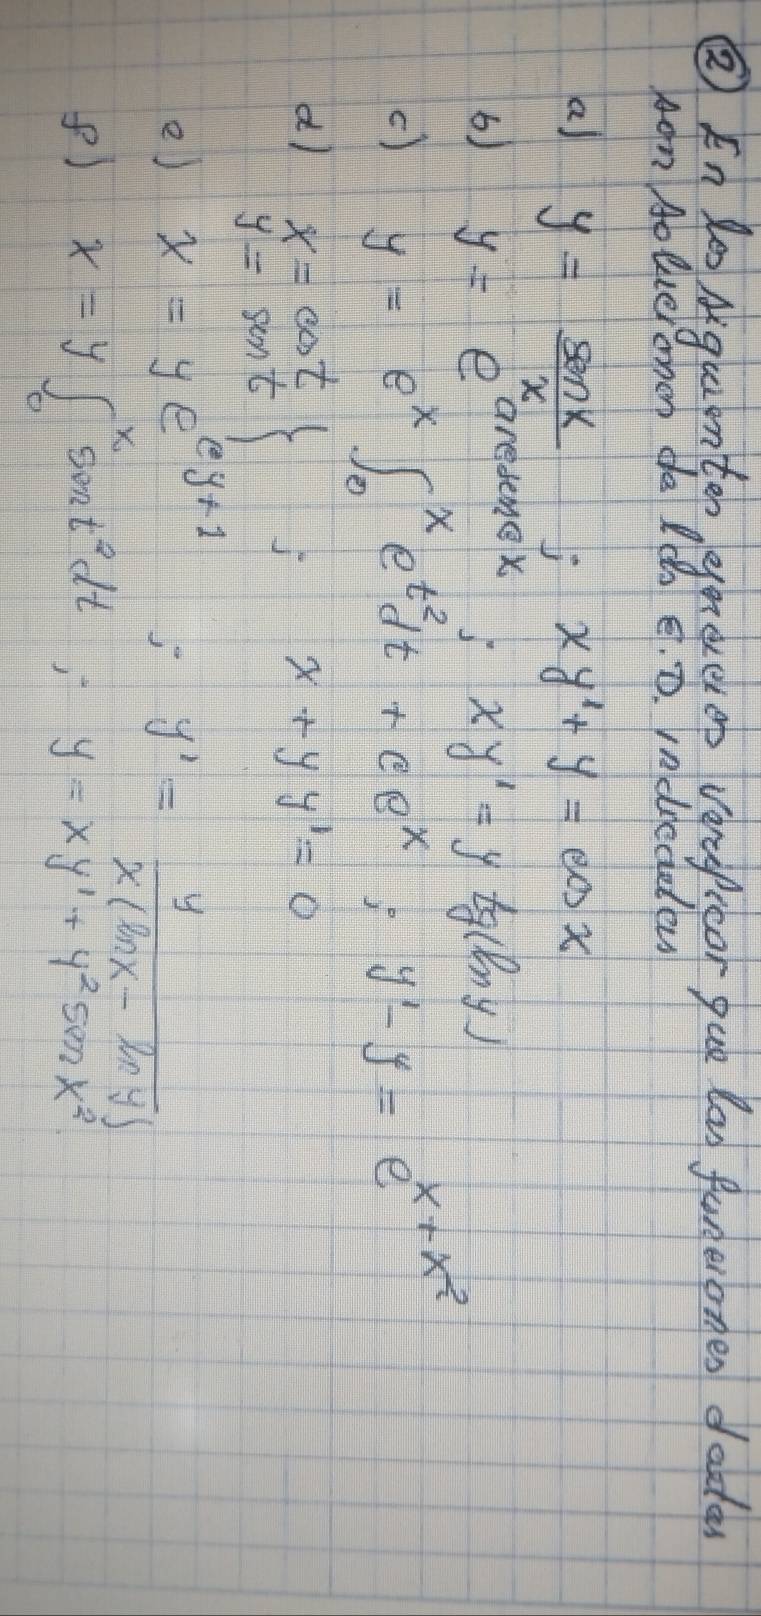 ② En los siguientes ejercicios verificar que las funciones dadas
son soluciones de las E.D. indicadas
a) y = sen x / x ; xy' + y = cos x
b) y = e^{arcsen cx} ; xy' = y tg(ln y)
c) y = e^x ∫_0^x e^{t^2} dt + ce^x ; y' - y = e^{x + x^2}
d) x = cos t
y = sen t } ; x + yy' = 0
e) x = y e^{cy+1} ; y' = y / x(ln x - ln y)
f) x = y ∫_0^x sen t^2 dt ; y = xy' + y^2 sen x^2